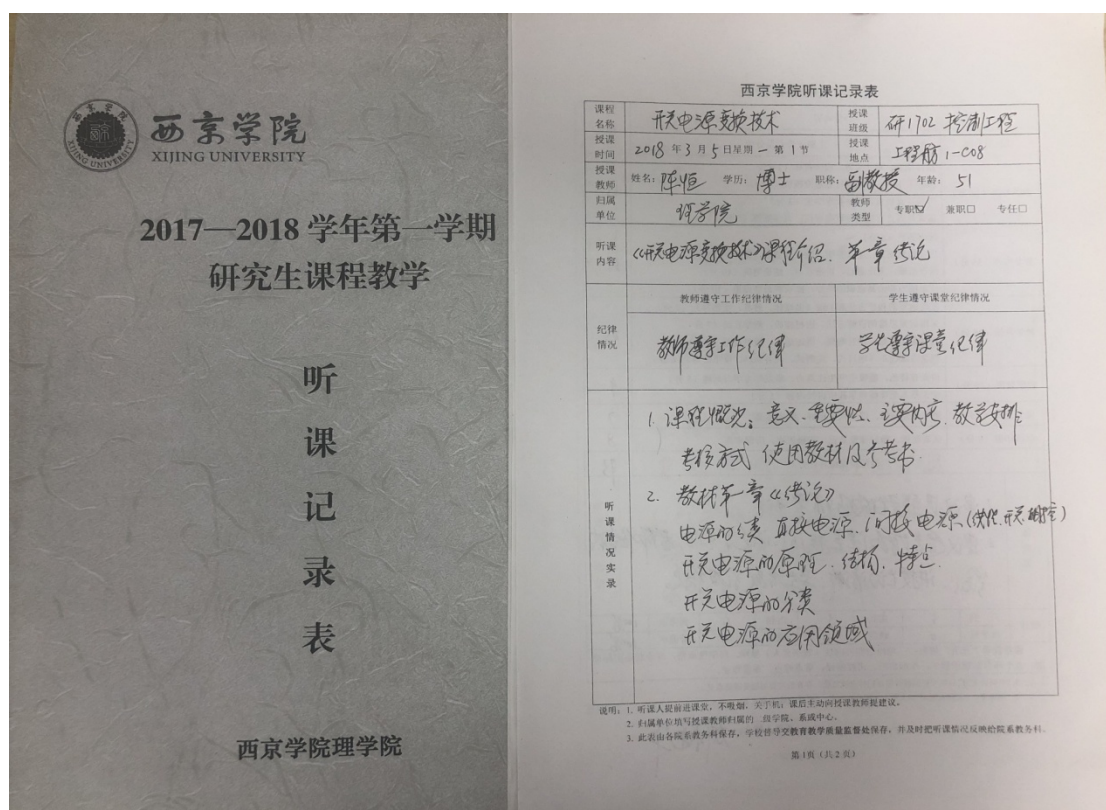 西京学院
XIJING UNIVERSITY
2017—2018 学年第一学期
研究生课程教学
听
课
记
录
表
西京学院理学院
西京学院听课记录表
课程名称 开关电源变换技术 授课班级 研1702 控制工程
授课时间 2018 年 3 月 5 日星期 一 第 1 节 授课地点 工程舫 1-C08
授课教师 姓名：陈恒 学历：博士 职称：副教授 年龄：51
归属单位 理学院 教师类型 专职☑ 兼职□ 专任□
听课内容 《开关电源变换技术》课程介绍. 第一章 绪论
教师遵守工作纪律情况 学生遵守课堂纪律情况
纪律情况 教师遵守工作纪律 学生遵守课堂纪律
听课情况实录
1. 课程概况：意义、重要性、主要内容. 教学安排
考核方式 使用教材及参考书.
2. 教材第一章《绪论》
电源的分类 直接电源. 间接电源(线性.开关.)
开关电源的原理. 结构. 特点
开关电源的分类
开关电源的应用领域
说明：1. 听课人提前进课堂，不吸烟，关手机；课后主动向授课教师提建议。
2. 归属单位填写授课教师归属的二级学院、系或中心。
3. 此表由各院系教务科保存，学校督导交教育教学质量监督处保存，并及时把听课情况反映给院系教务科.
第1页（共2页）